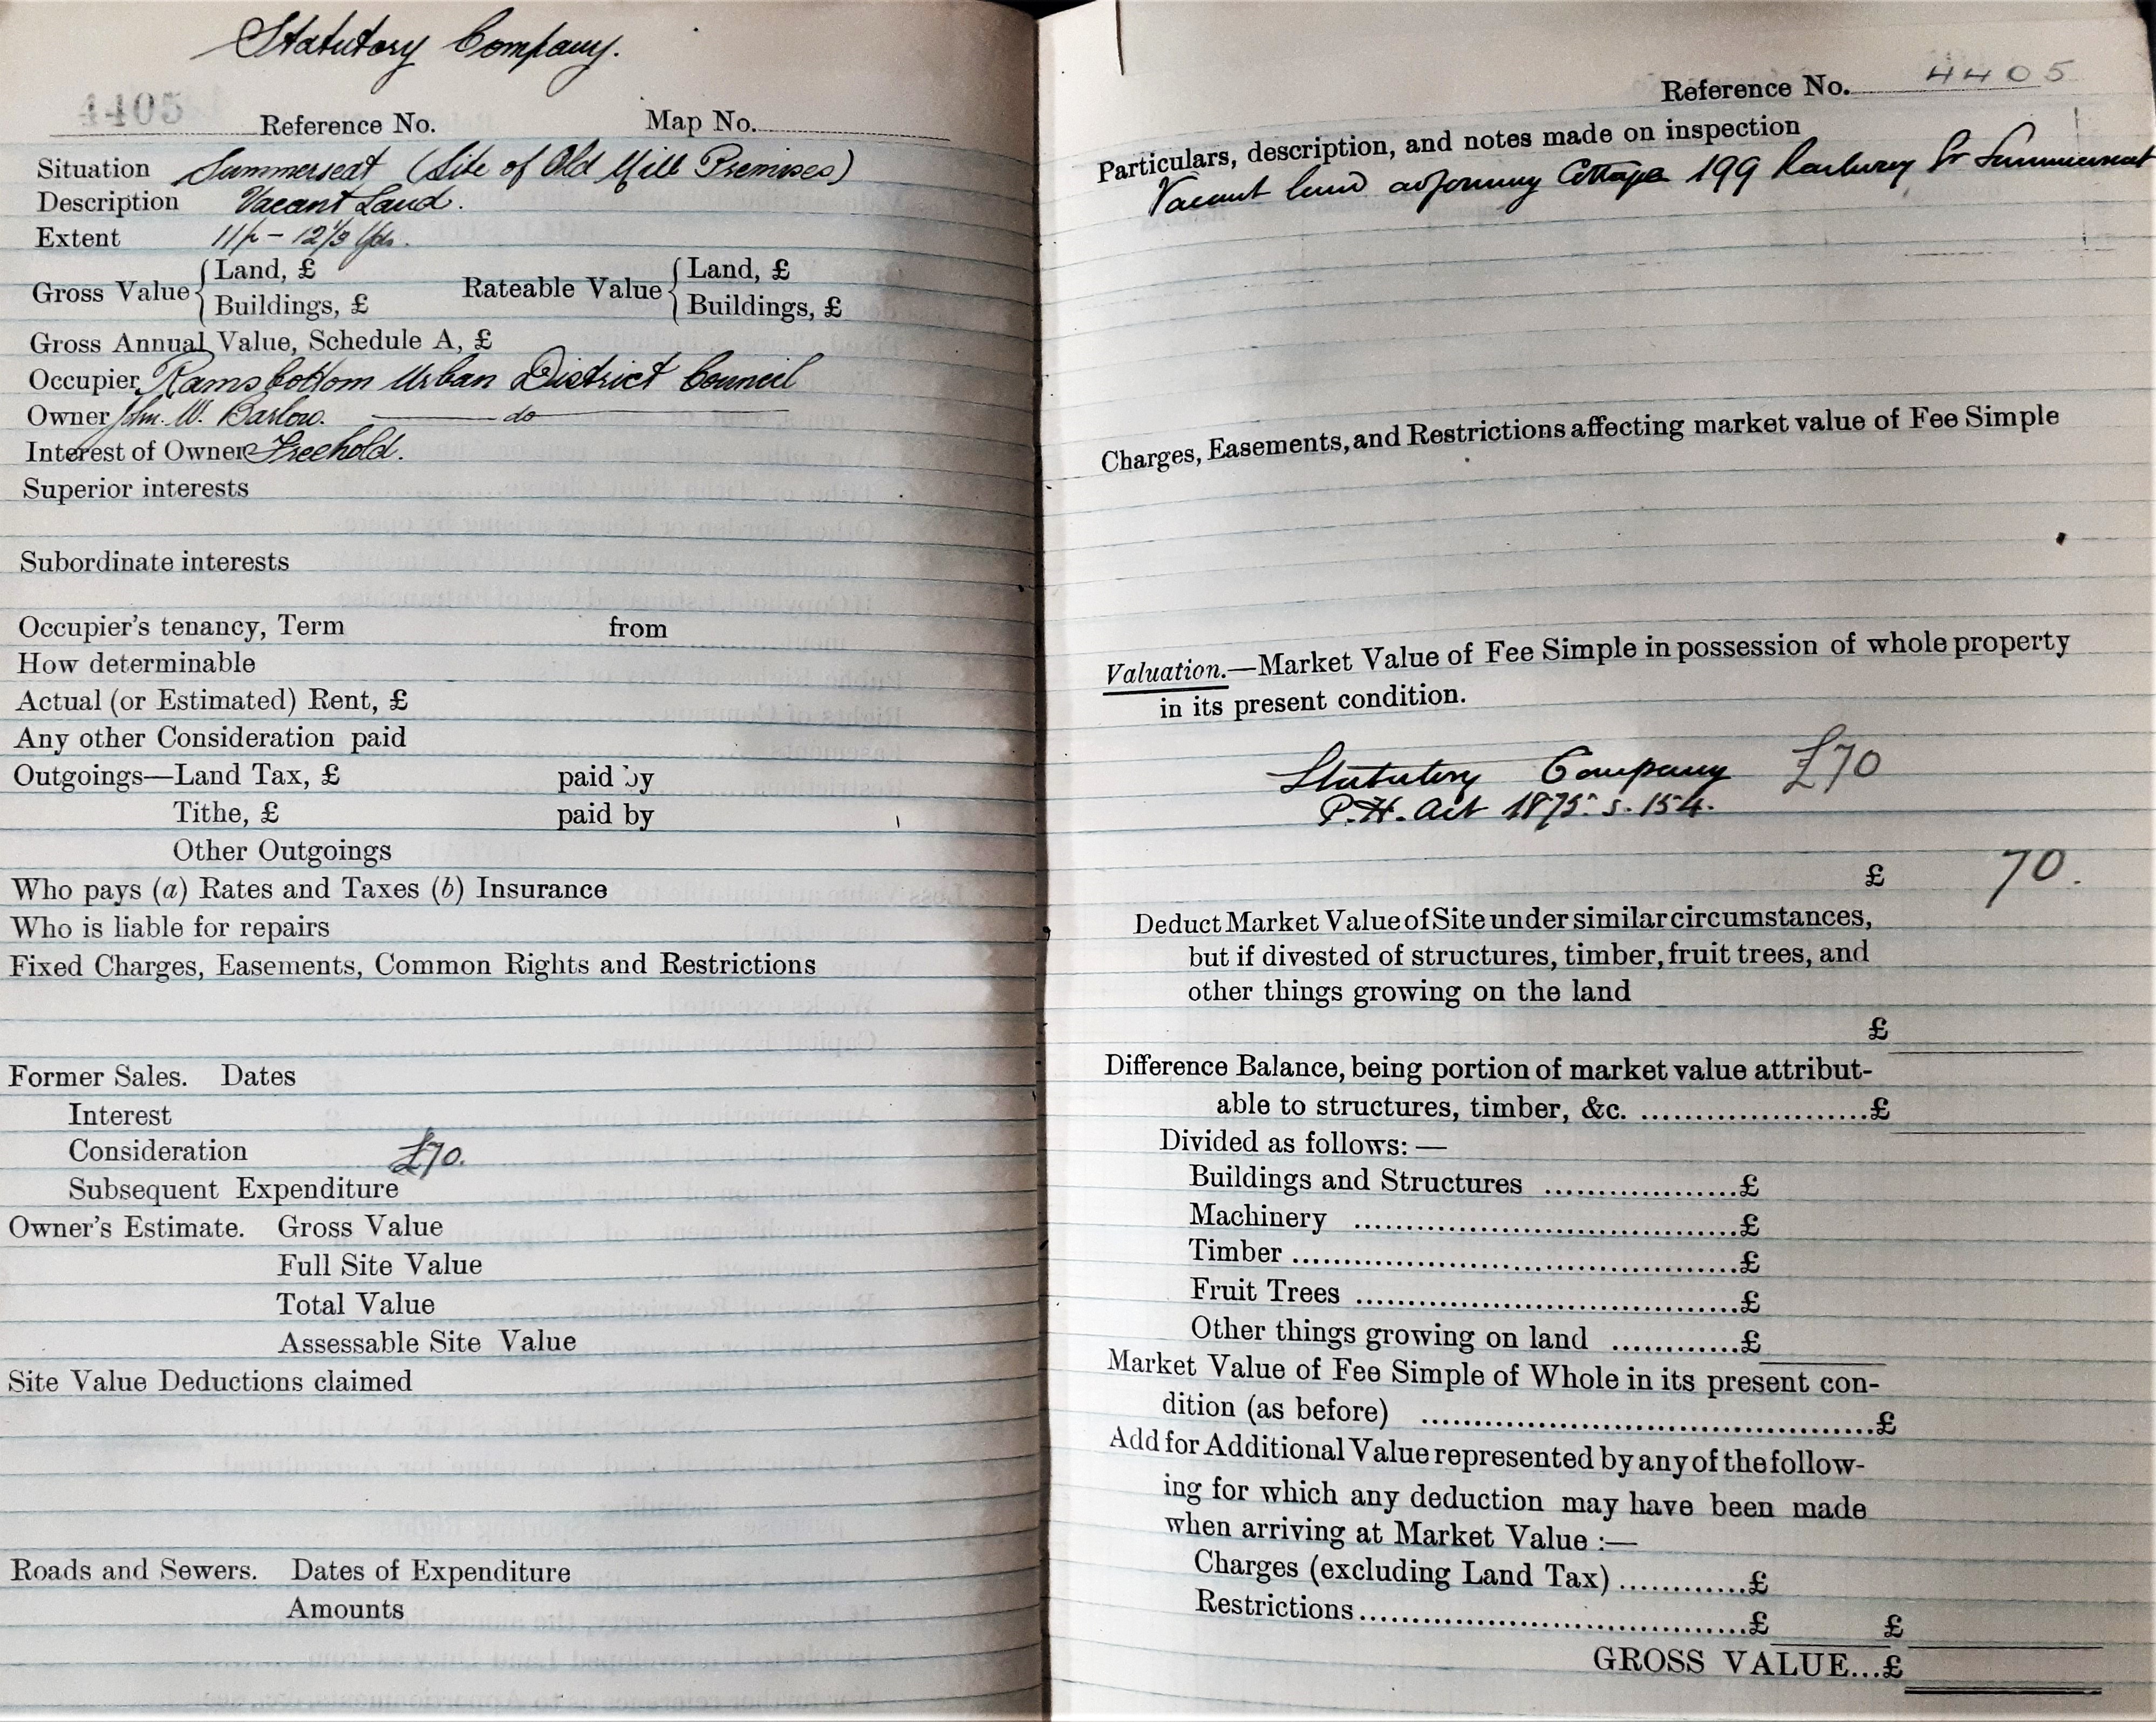 Statutory Company.
4405 Reference No. Map No.
Situation Summerseat (Site of Old Mill Premises)
Description Vacant Land.
Extent 11p - 12⅓ Yds.
Gross Value { Land, £ Rateable Value { Land, £
Buildings, £ Buildings, £
Gross Annual Value, Schedule A, £
Occupier Ramsbottom Urban District Council
Owner Jhn. W. Barlow. do
Interest of Owner Freehold.
Superior interests
Subordinate interests
Occupier's tenancy, Term from
How determinable
Actual (or Estimated) Rent, £
Any other Consideration paid
Outgoings—Land Tax, £ paid by
Tithe, £ paid by
Other Outgoings
Who pays (a) Rates and Taxes (b) Insurance
Who is liable for repairs
Fixed Charges, Easements, Common Rights and Restrictions
Former Sales. Dates
Interest
Consideration £70.
Subsequent Expenditure
Owner's Estimate. Gross Value
Full Site Value
Total Value
Assessable Site Value
Site Value Deductions claimed
Roads and Sewers. Dates of Expenditure
Amounts
Reference No. 4405
Particulars, description, and notes made on inspection
Vacant land adjoining Cottage 199 Railway St Summerseat
Charges, Easements, and Restrictions affecting market value of Fee Simple
Valuation.—Market Value of Fee Simple in possession of whole property
in its present condition.
Statutory Company £70
P.H. Act 1875. s. 154.
£ 70.
Deduct Market Value of Site under similar circumstances,
but if divested of structures, timber, fruit trees, and
other things growing on the land
£
Difference Balance, being portion of market value attribut-
able to structures, timber, &c. ......................£
Divided as follows:—
Buildings and Structures ...................£
Machinery ...................£
Timber ...................£
Fruit Trees ...................£
Other things growing on land ............£
Market Value of Fee Simple of Whole in its present con-
dition (as before) ...................£
Add for Additional Value represented by any of the follow-
ing for which any deduction may have been made
when arriving at Market Value :—
Charges (excluding Land Tax) ............£
Restrictions...................£ £
GROSS VALUE...£